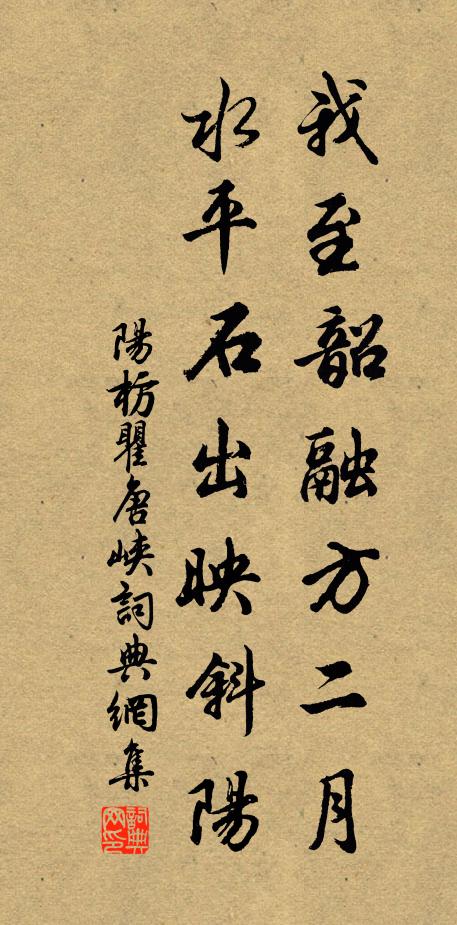 我至韶融方二月
水平石出映斜陽
陽枋瞿唐峽詞典網集
詞典
网印